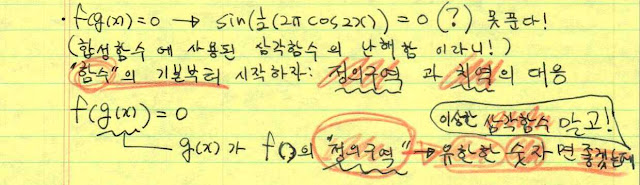 · f(g(x))=0 → sin(½(2π cos2x)) = 0 (?) 못푼다!
(합성함수에 사용된 삼각함수의 난해함 이라니!)
"함수"의 기본부터 시작하자: 정의구역 과 치역의 대응
f(g(x))=0
이상한 삼각함수 말고!
g(x)가 f( )의 "정의구역" → 유한한 숫자면 좋겠는데